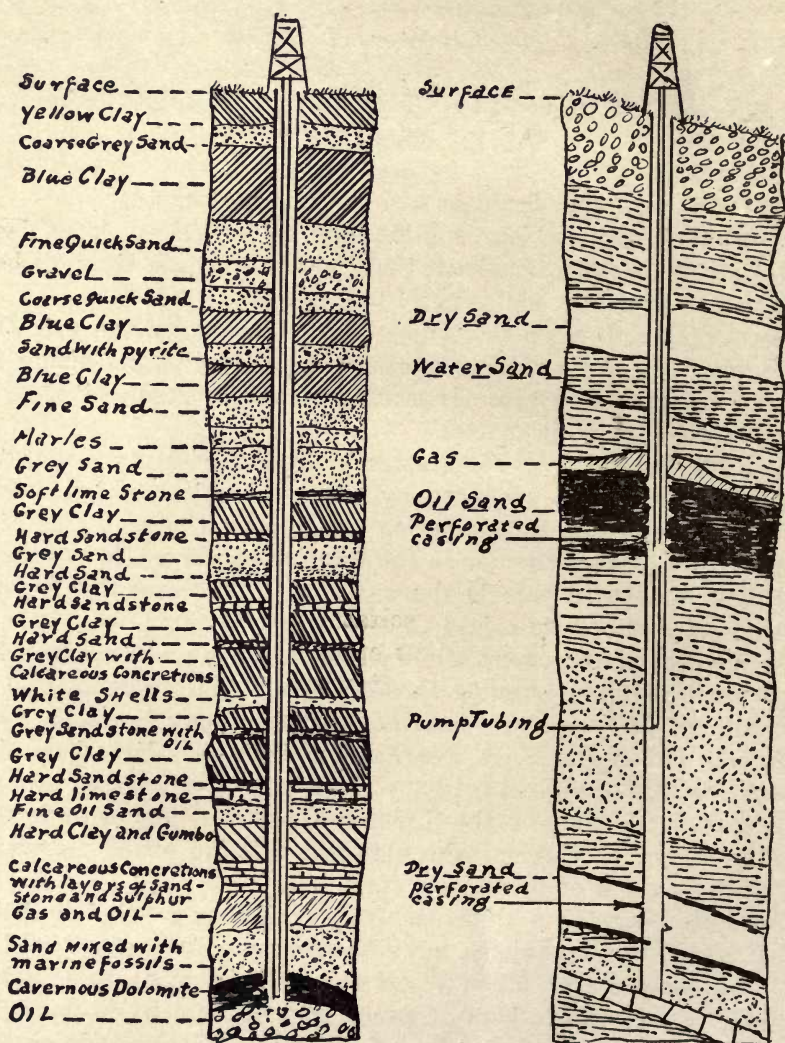 Surface
Yellow Clay
Coarse Grey Sand
Blue Clay
Fine Quick Sand
Gravel
Coarse Quick Sand
Blue Clay
Sand with pyrite
Blue Clay
Fine Sand
Marles
Grey Sand
Soft lime Stone
Grey Clay
Hard Sandstone
Grey Sand
Hard Sand
Grey Clay
Hard Sandstone
Grey Clay
Hard Sand
Grey Clay with
Calcareous Concretions
White Shells
Grey Clay
Grey Sandstone with
OIL
Grey Clay
Hard Sandstone
Hard limestone
Fine Oil Sand
Hard Clay and Gumbo
Calcareous Concretions
with layers of Sand-
Stone and Sulphur
Gas and OIL
Sand mixed with
marine fossils
Cavernous Dolomite
OIL
SURFACE
Dry Sand
Water Sand
Gas
Oil Sand
Perforated
casing
Pump Tubing
Dry Sand
perforated
casing